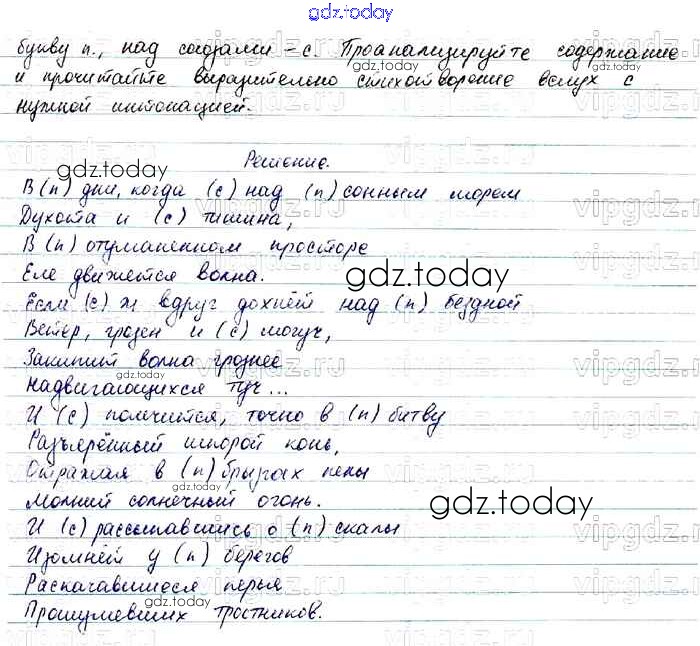 gdz.today
букву п., над союзами – с. Проанализируйте содержание
и прочитайте выразительно стихотворение вслух с
нужной интонацией.
Решение.
gdz.today
В (п) дни, когда (с) над (п) сонным морем
Духота и (с) тишина,
В (п) отуманенном просторе
Еле движется волна.
gdz.today
Если (с) ж вдруг дохнёт над (п) бездной
Ветер, грозен и (с) могуч,
Закипит волна грознее
Надвигающихся туч...
И (с) помчится, точно в (п) битву
Разъярённый шпорой конь,
Отражая в (п) брызгах пены
Молний солнечный огонь.
gdz.today
И (с) рассыпавшись о (п) скалы
Изомнёт у (п) берегов
Раскачавшиеся перья
Прошумевших тростников.
gdz.today
vipgdz.ru